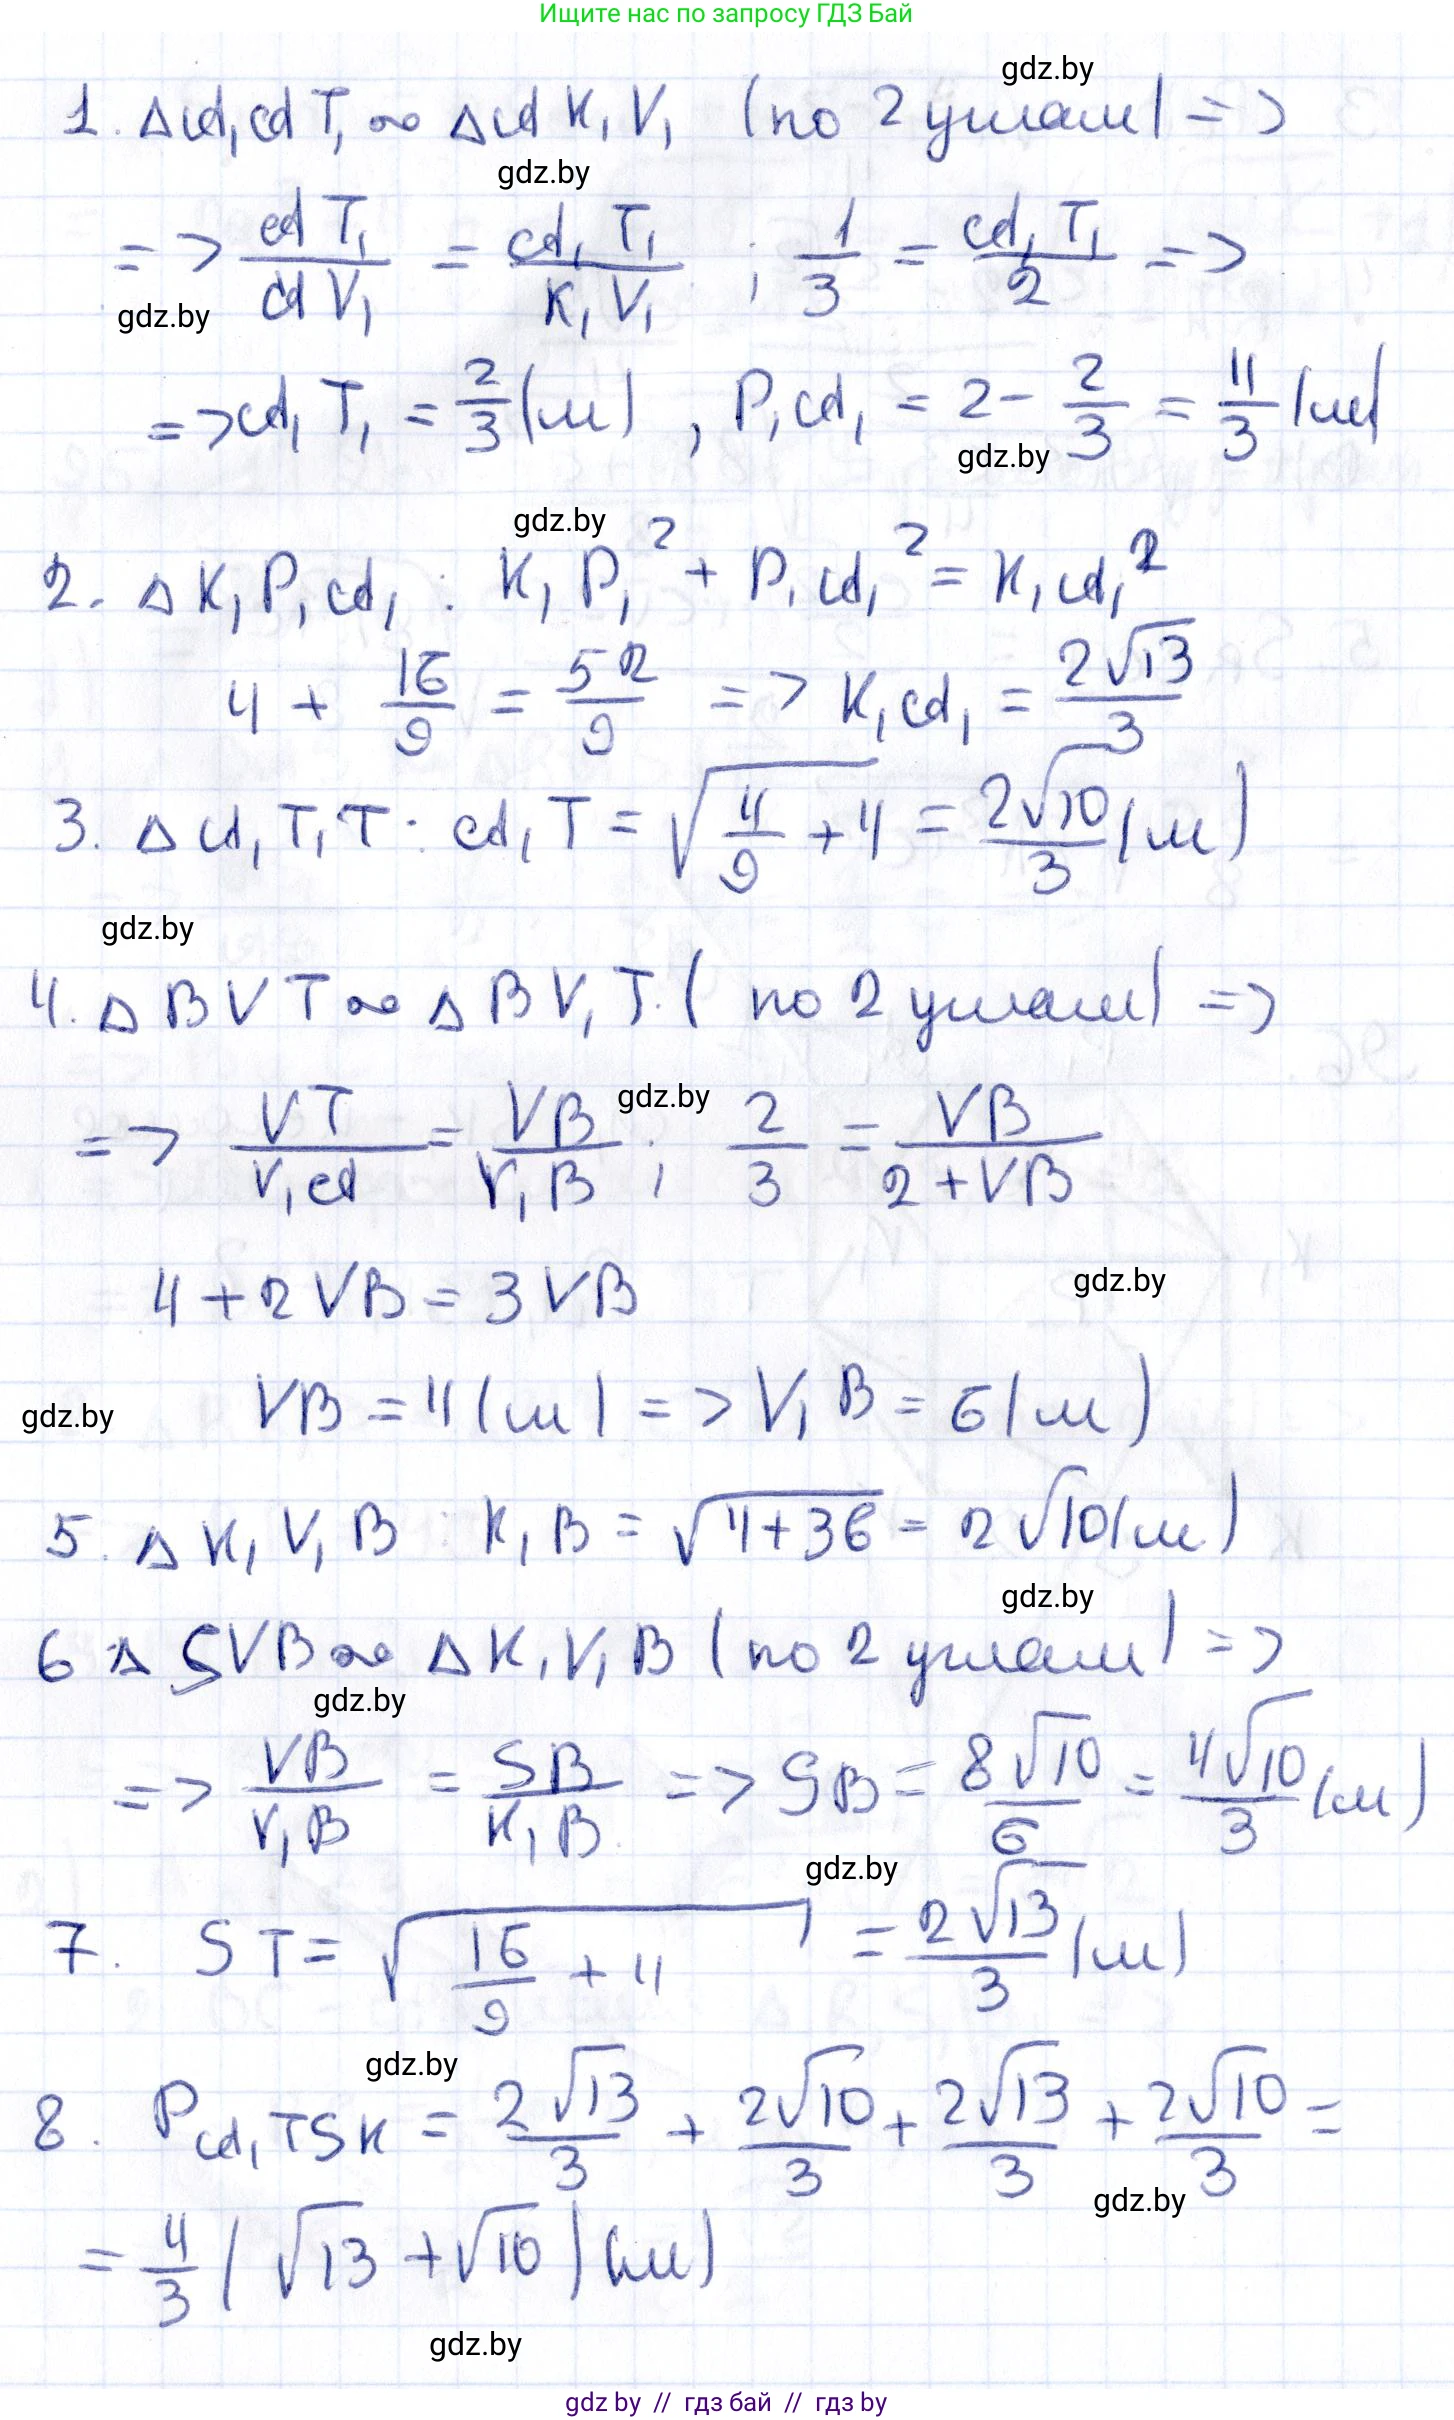 Ищите нас по запросу ГДЗ Бай
gdz.by
1. Δ cd₁cdT₁ ∾ Δ cdK₁V₁ (по 2 углам) =>
gdz.by
=> cdT₁/cdV₁ = cd₁T₁/K₁V₁ ; 1/3 = cd₁T₁/2 =>
gdz.by
=> cd₁T₁ = 2/3 (м) , P₁cd₁ = 2 - 2/3 = 4/3 (м)
gdz.by
gdz.by
2. Δ K₁P₁cd₁ : K₁P₁² + P₁cd₁² = K₁cd₁²
4 + 16/9 = 52/9 => K₁cd₁ = 2√13/3
3. Δ cd₁T₁T : cd₁T = √(4/9 + 4) = 2√10/3 (м)
gdz.by
4. Δ BVT ∾ Δ BV₁T. (по 2 углам) =>
gdz.by
=> VT/V₁cd = VB/V₁B ; 2/3 = VB/(2 + VB)
4 + 2VB = 3VB
gdz.by
VB = 4 (м) => V₁B = 6 (м)
gdz.by
5. Δ K₁V₁B : K₁B = √(4+36) = 2√10 (м)
gdz.by
6 Δ SVB ∾ Δ K₁V₁B (по 2 углам) =>
gdz.by
=> VB/V₁B = SB/K₁B => SB = 8√10/6 = 4√10/3 (м)
gdz.by
7. ST = √(16/9 + 4) = 2√13/3 (м)
gdz.by
8. P cd₁TSK = 2√13/3 + 2√10/3 + 2√13/3 + 2√10/3 =
gdz.by
= 4/3 (√13 + √10) (м)
gdz.by
gdz by // гдз бай // гдз by